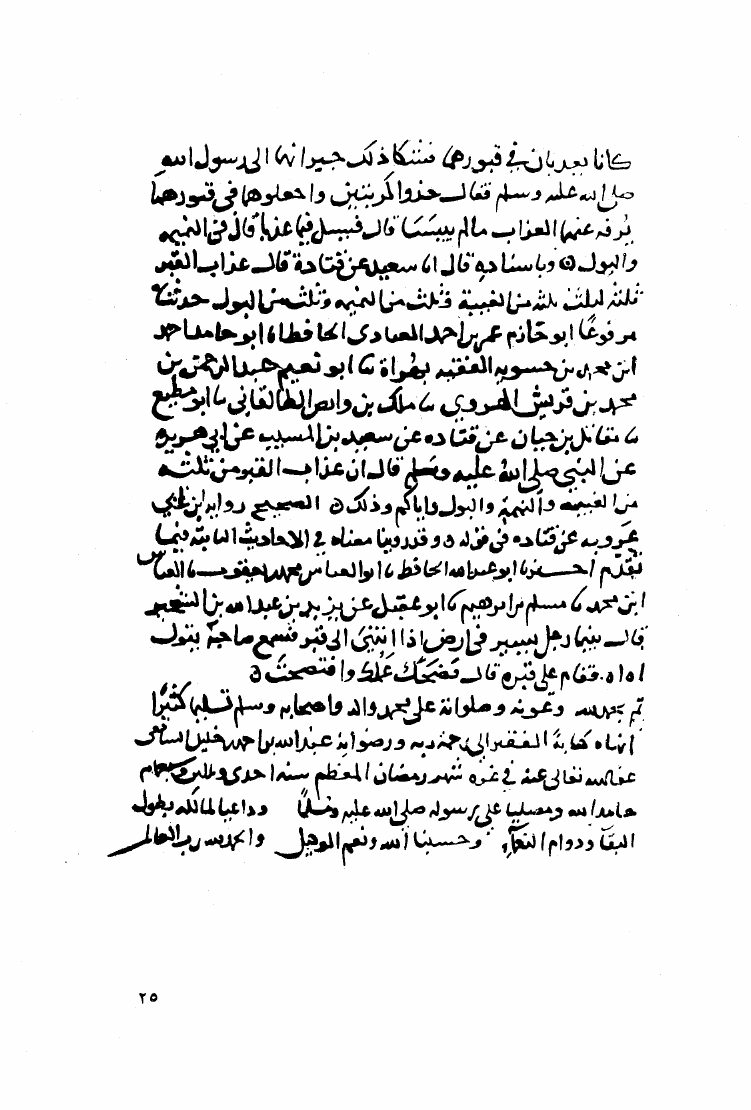 كانا يعذبان في قبورهما فشكا ذلك جيرانهما الى رسول الله
صلى الله عليه وسلم فقال خذوا كربتين واجعلوهما في قبورهما
يرفه عنهما العذاب ما لم ييبسا قال فسئل فيما عذبا قال في النميمه
والبول وباسناده قال انا سعيد عن قتادة قال عذاب القبر
ثلثه اثلاث ثلث من الغيبة وثلث من النميمه وثلث من البول حدثنا
مرفوعا ابو حازم عمر بن احمد العبادى الحافظ انا ابو حامد احمد
ابن محمد بن حسويه الفقيه بهراة نا ابو نعيم عبد الرحمن بن
محمد بن قريش الهروي نا ملك بن وابص الطالقاني نا ابو مطيع
نا مقاتل بن حيان عن قتاده عن سعيد بن المسيب عن ابي هريره
عن النبي صلى الله عليه وسلم قال ان عذاب القبر من ثلثه
من الغيبه والنميمة والبول واياكم وذلك الصحيح روايه ابن ابي
عروبه عن قتاده في قوله وقد روينا معناه في الاحاديث الثابته فيما
تقدم اخبرنا ابو عبد الله الحافظ نا ابو العباس محمد بن يعقوب نا العباس
ابن محمد نا مسلم بن ابرهيم نا ابو عقيل عن يزيد بن عبد الله بن الشخير
قال بينما رجل يسير في ارض اذا انتهى الى قبر فسمع صاحبه يقول
اه اه فقام على قبره قال فضحك عملك وافتضحت
تم بحمد الله وعونه وصلواته على محمد واله واصحابه وسلم تسليما كثيرا
انهاه كتابة الفقير الى رحمة ربه ورضوانه عبد الله بن احمد بن خليل الشافعى
عفا الله تعالى عنه في غره شهر رمضان المعظم سنه احدى وثلثين
حامدا لله ومصليا على رسوله صلى الله عليه وسلم وداعيا لمالكه بطول
البقا ودوام النعماء وحسبنا الله ونعم الوكيل والحمد لله رب العالمين
٢٥